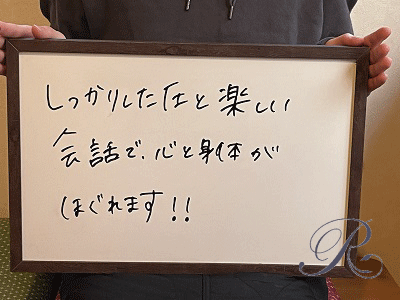 しっかりした圧と楽しい
会話で、心と身体が
ほぐれます!!
R